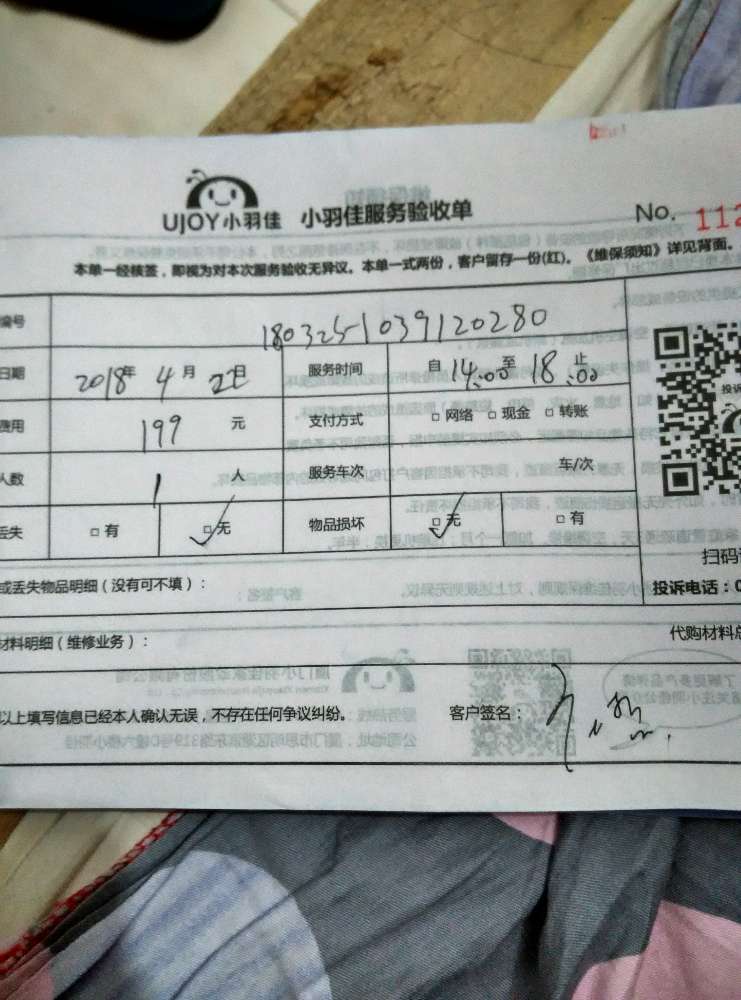 UJOY小羽佳 小羽佳服务验收单 No. 112
本单一经核签，即视为对本次服务验收无异议。本单一式两份，客户留存一份(红)。《维保须知》详见背面。
编号 180325-1039120280
日期 2018年 4月 2日 服务时间 自14:00至18:00止
费用 199 元 支付方式 □ 网络 □ 现金 □ 转账
人数 1 人 服务车次 车/次
丢失 □ 有 □ 无 物品损坏 □ 无 □ 有
或丢失物品明细（没有可不填）：
扫码
投诉电话：0
材料明细（维修业务）： 代购材料总
以上填写信息已经本人确认无误，不存在任何争议纠纷。 客户签名：